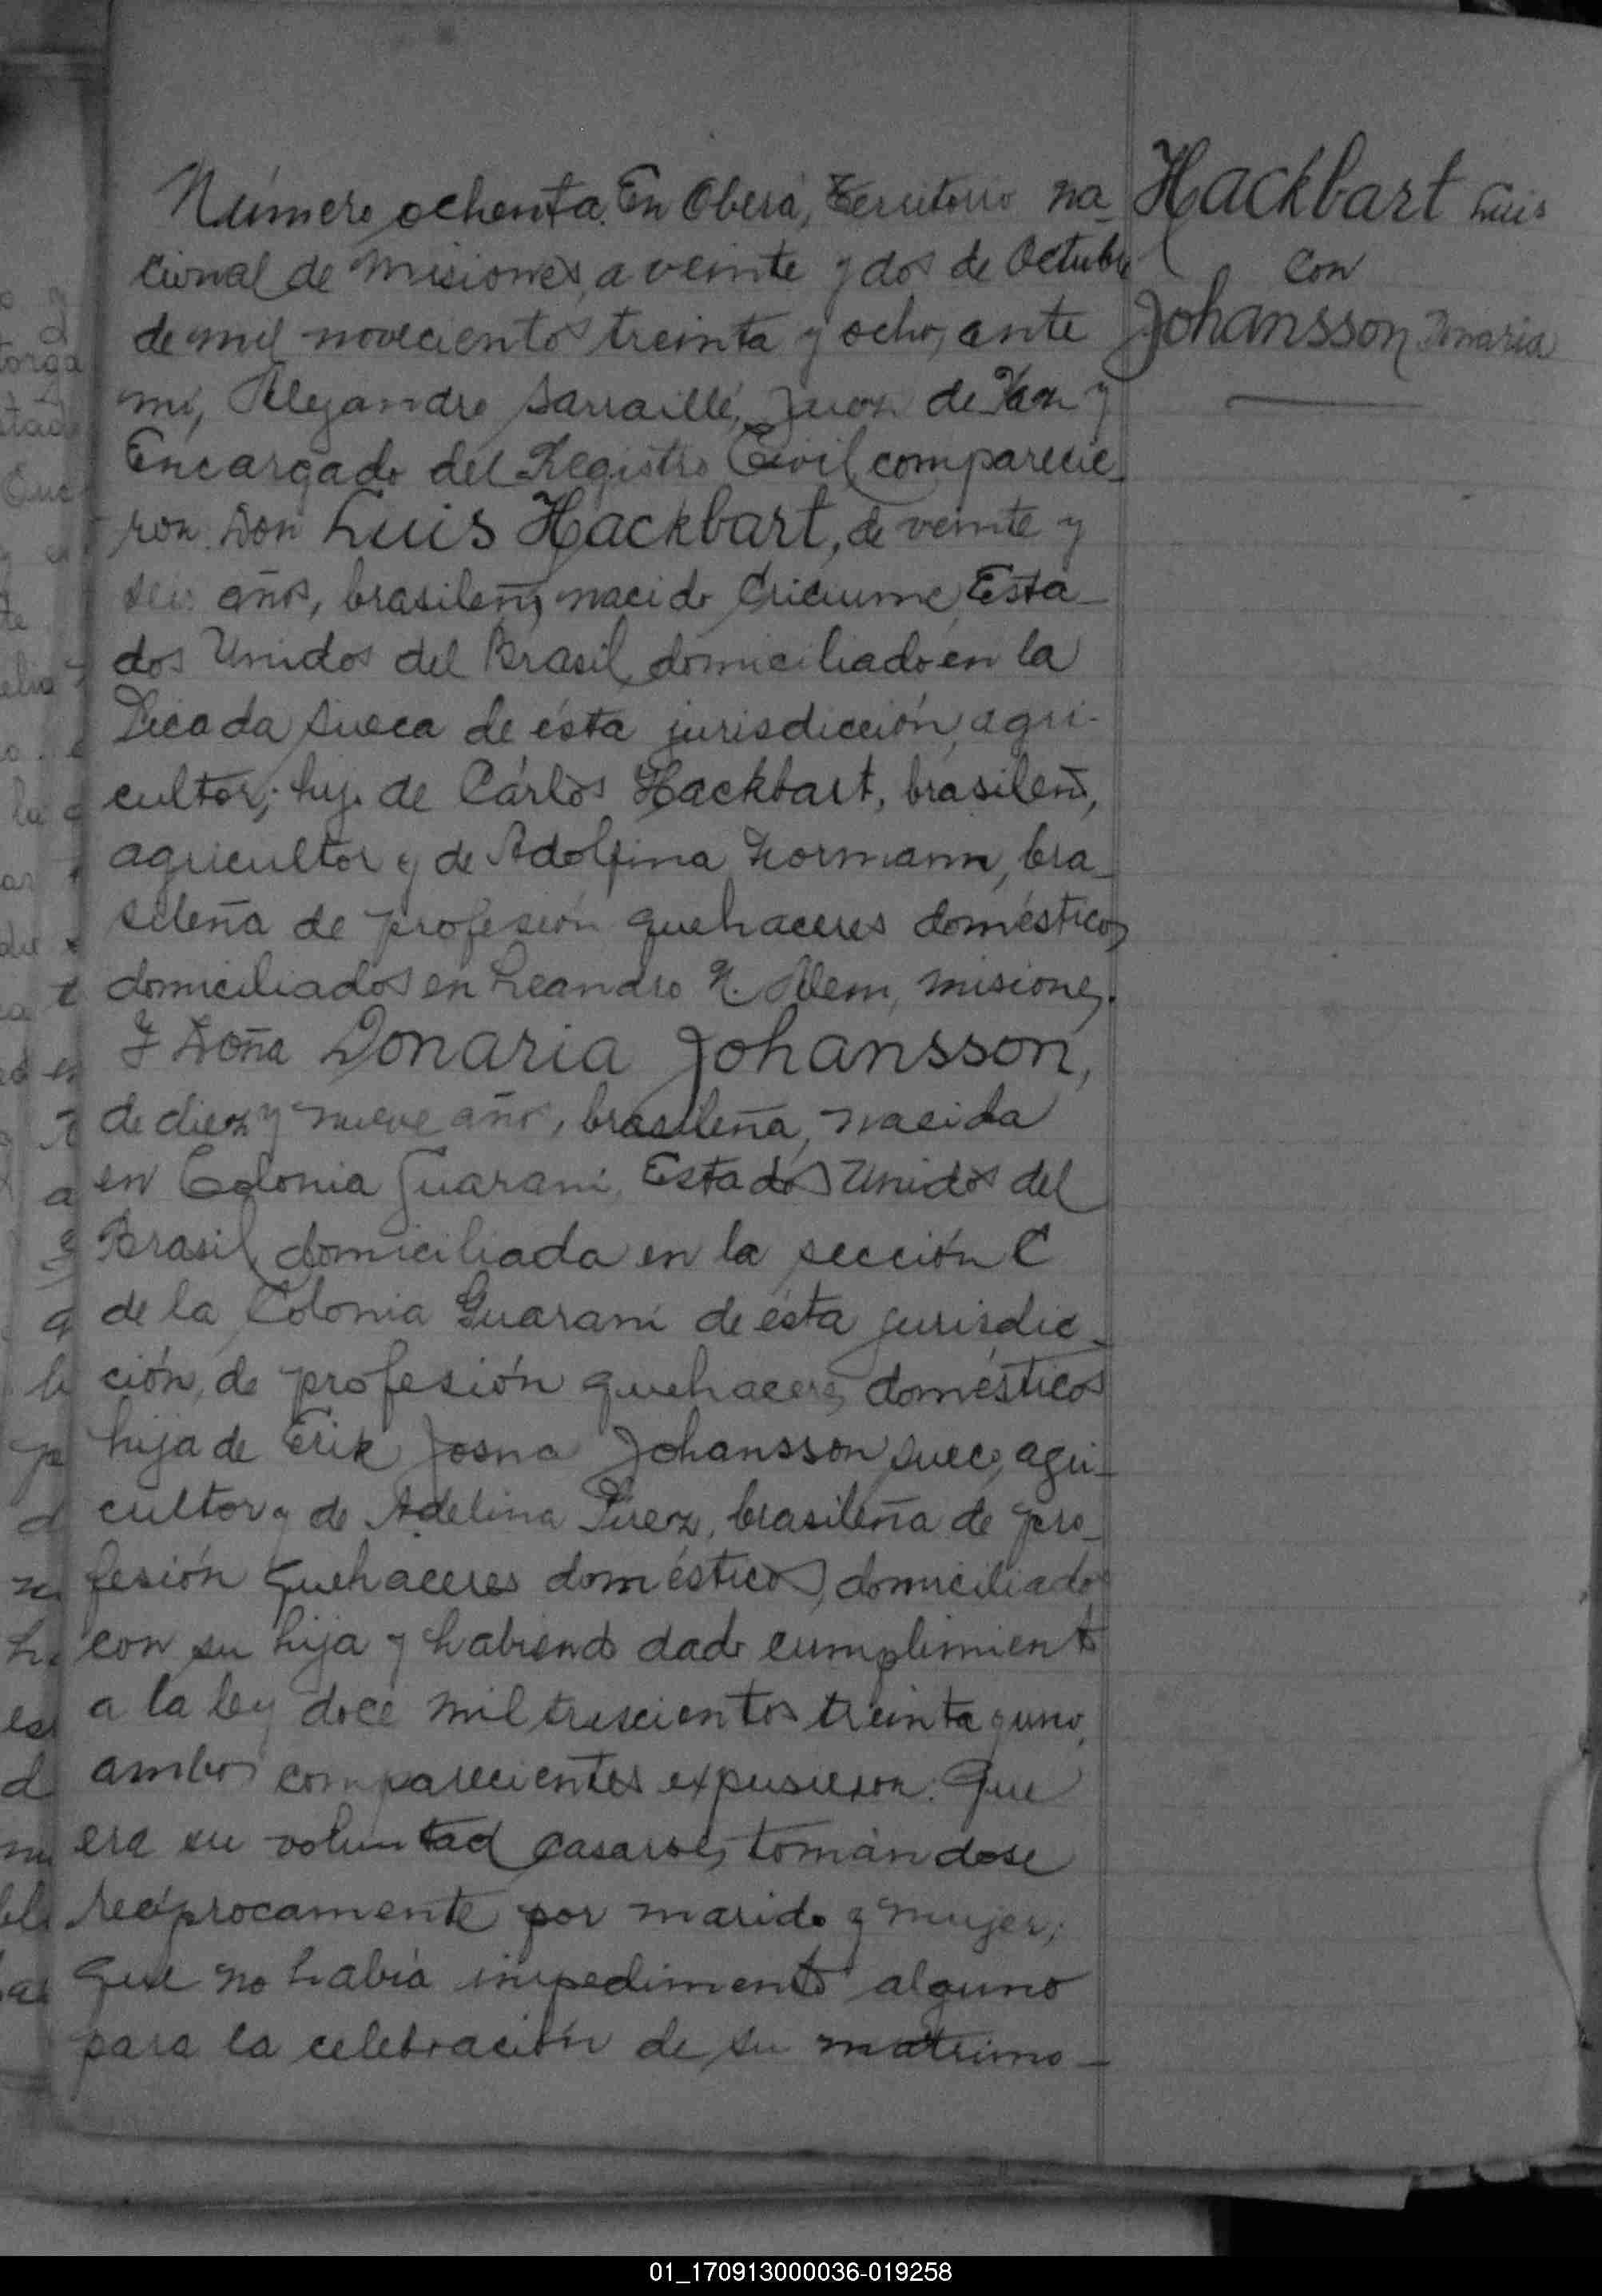 Número ochenta. En Oberá, Territorio na-
cional de Misiones, a veinte y dos de Octubre
de mil novecientos treinta y ocho, ante
mí, Alejandro Sarraillé, Juez de Paz y
Encargado del Registro Civil, comparecie-
ron Don Luis Hackbart, de veinte y
seis años, brasileño, nacido Criciume, Esta-
dos Unidos del Brasil, domiciliado en la
Picada Sueca de ésta jurisdicción, agri-
cultor; hijo de Cárlos Hackbart, brasileño,
agricultor y de Adolfina Zormann, bra-
sileña de profesión quehaceres domésticos,
domiciliados en Leandro N. Alem, Misiones.
Y Doña Donaria Johansson,
de diez y nueve años, brasileña, nacida
en Colonia Guarani, Estados Unidos del
Brasil, domiciliada en la sección C
de la Colonia Guaraní de ésta jurisdic-
ción, de profesión quehaceres domésticos
hija de Erik Josna Johansson, sueco, agri-
cultor y de Adelina Pirez, brasileña de pro-
fesión quehaceres domésticos, domiciliados
con su hija y habiendo dado cumplimiento
a la ley doce mil trescientos treinta y uno,
ambos comparecientes expusieron: Que
era su voluntad casarse, tomándose
recíprocamente por marido y mujer;
que no había impedimento alguno
para la celebración de su matrimo-
Hackbart Luis
con
Johansson Donaria
01_170913000036-019258